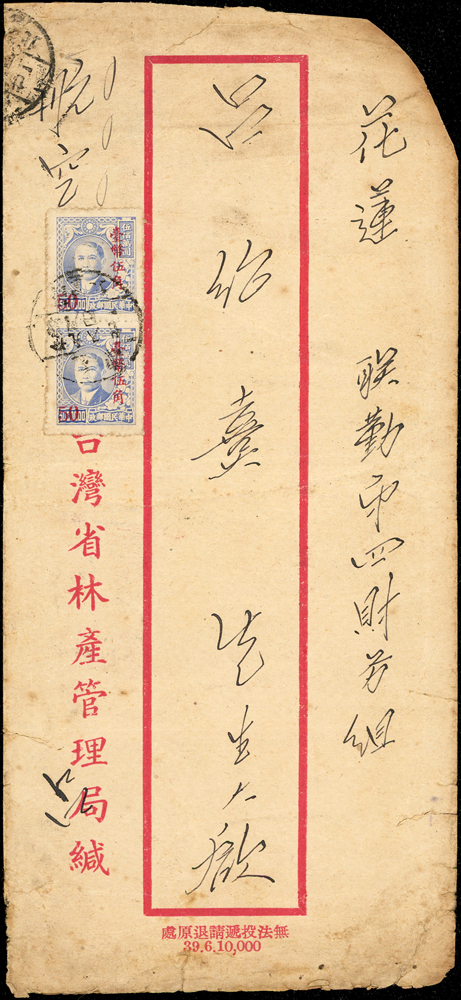 花蓮 联勤第四財务組
呂 先生大啟
航空
台灣省林產管理局緘
呂
臺幣伍角
50
臺幣伍角
50
無法投遞請退原處
39.6.10,000